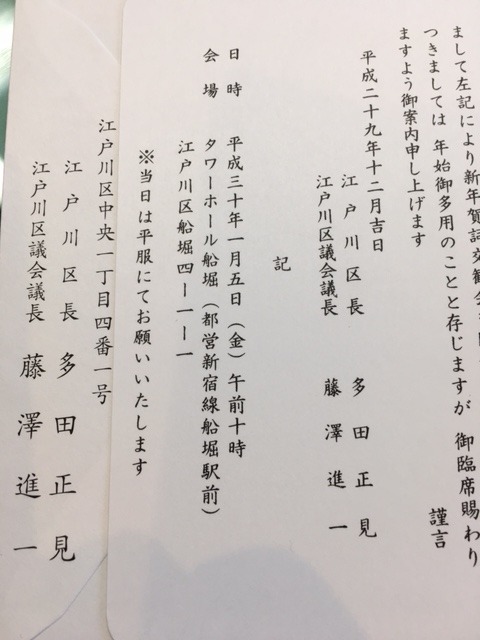 まして左記により新年賀詞交歓会を
つきましては 年始御多用のことと存じますが 御臨席賜わり
ますよう御案内申し上げます
謹言
平成二十九年十二月吉日
江戸川区長 多田正見
江戸川区議会議長 藤澤進一
記
日時 平成三十年一月五日（金）午前十時
会場 タワーホール船堀（都営新宿線船堀駅前）
江戸川区船堀四ー一ー一
※当日は平服にてお願いいたします
江戸川区中央一丁目四番一号
江戸川区長 多田正見
江戸川区議会議長 藤澤進一